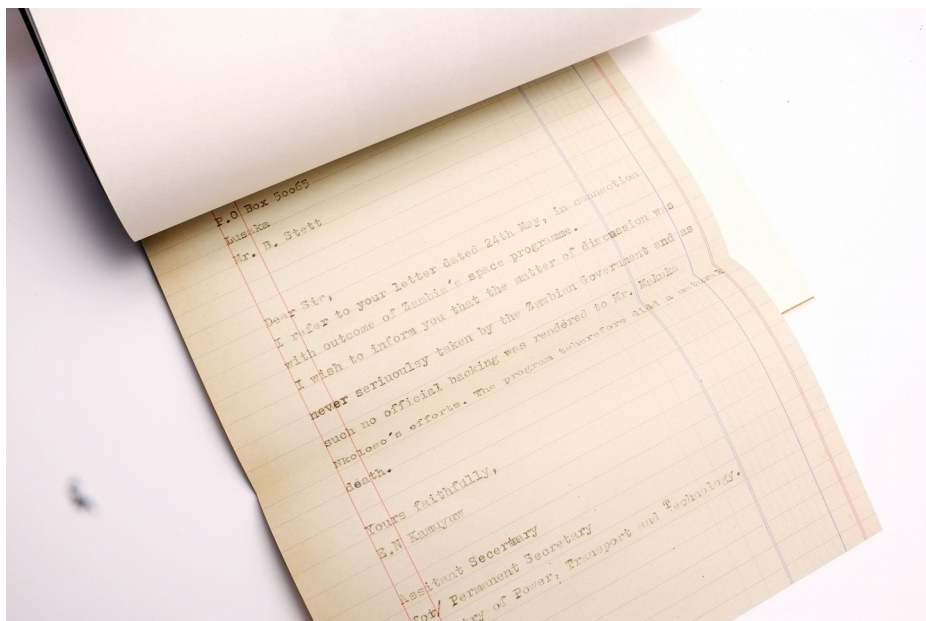 P.O Box 50065
Lusaka
Mr. B. Stett
Dear Sir,
I refer to your letter dated 24th May, in connection
with outcome of Zambia's space programme.
I wish to inform you that the matter of discussion was
never seriuoulsy taken by the Zambian Government and as
such no official backing was rendered to Mr. Makuka
Nkoloso's efforts. The program teherefore died a natural
death.
Yours faithfully,
E.N Kamuyuw
Assitant Secertary
for/ Permanent Secretary
of Power, Transport and Technology.